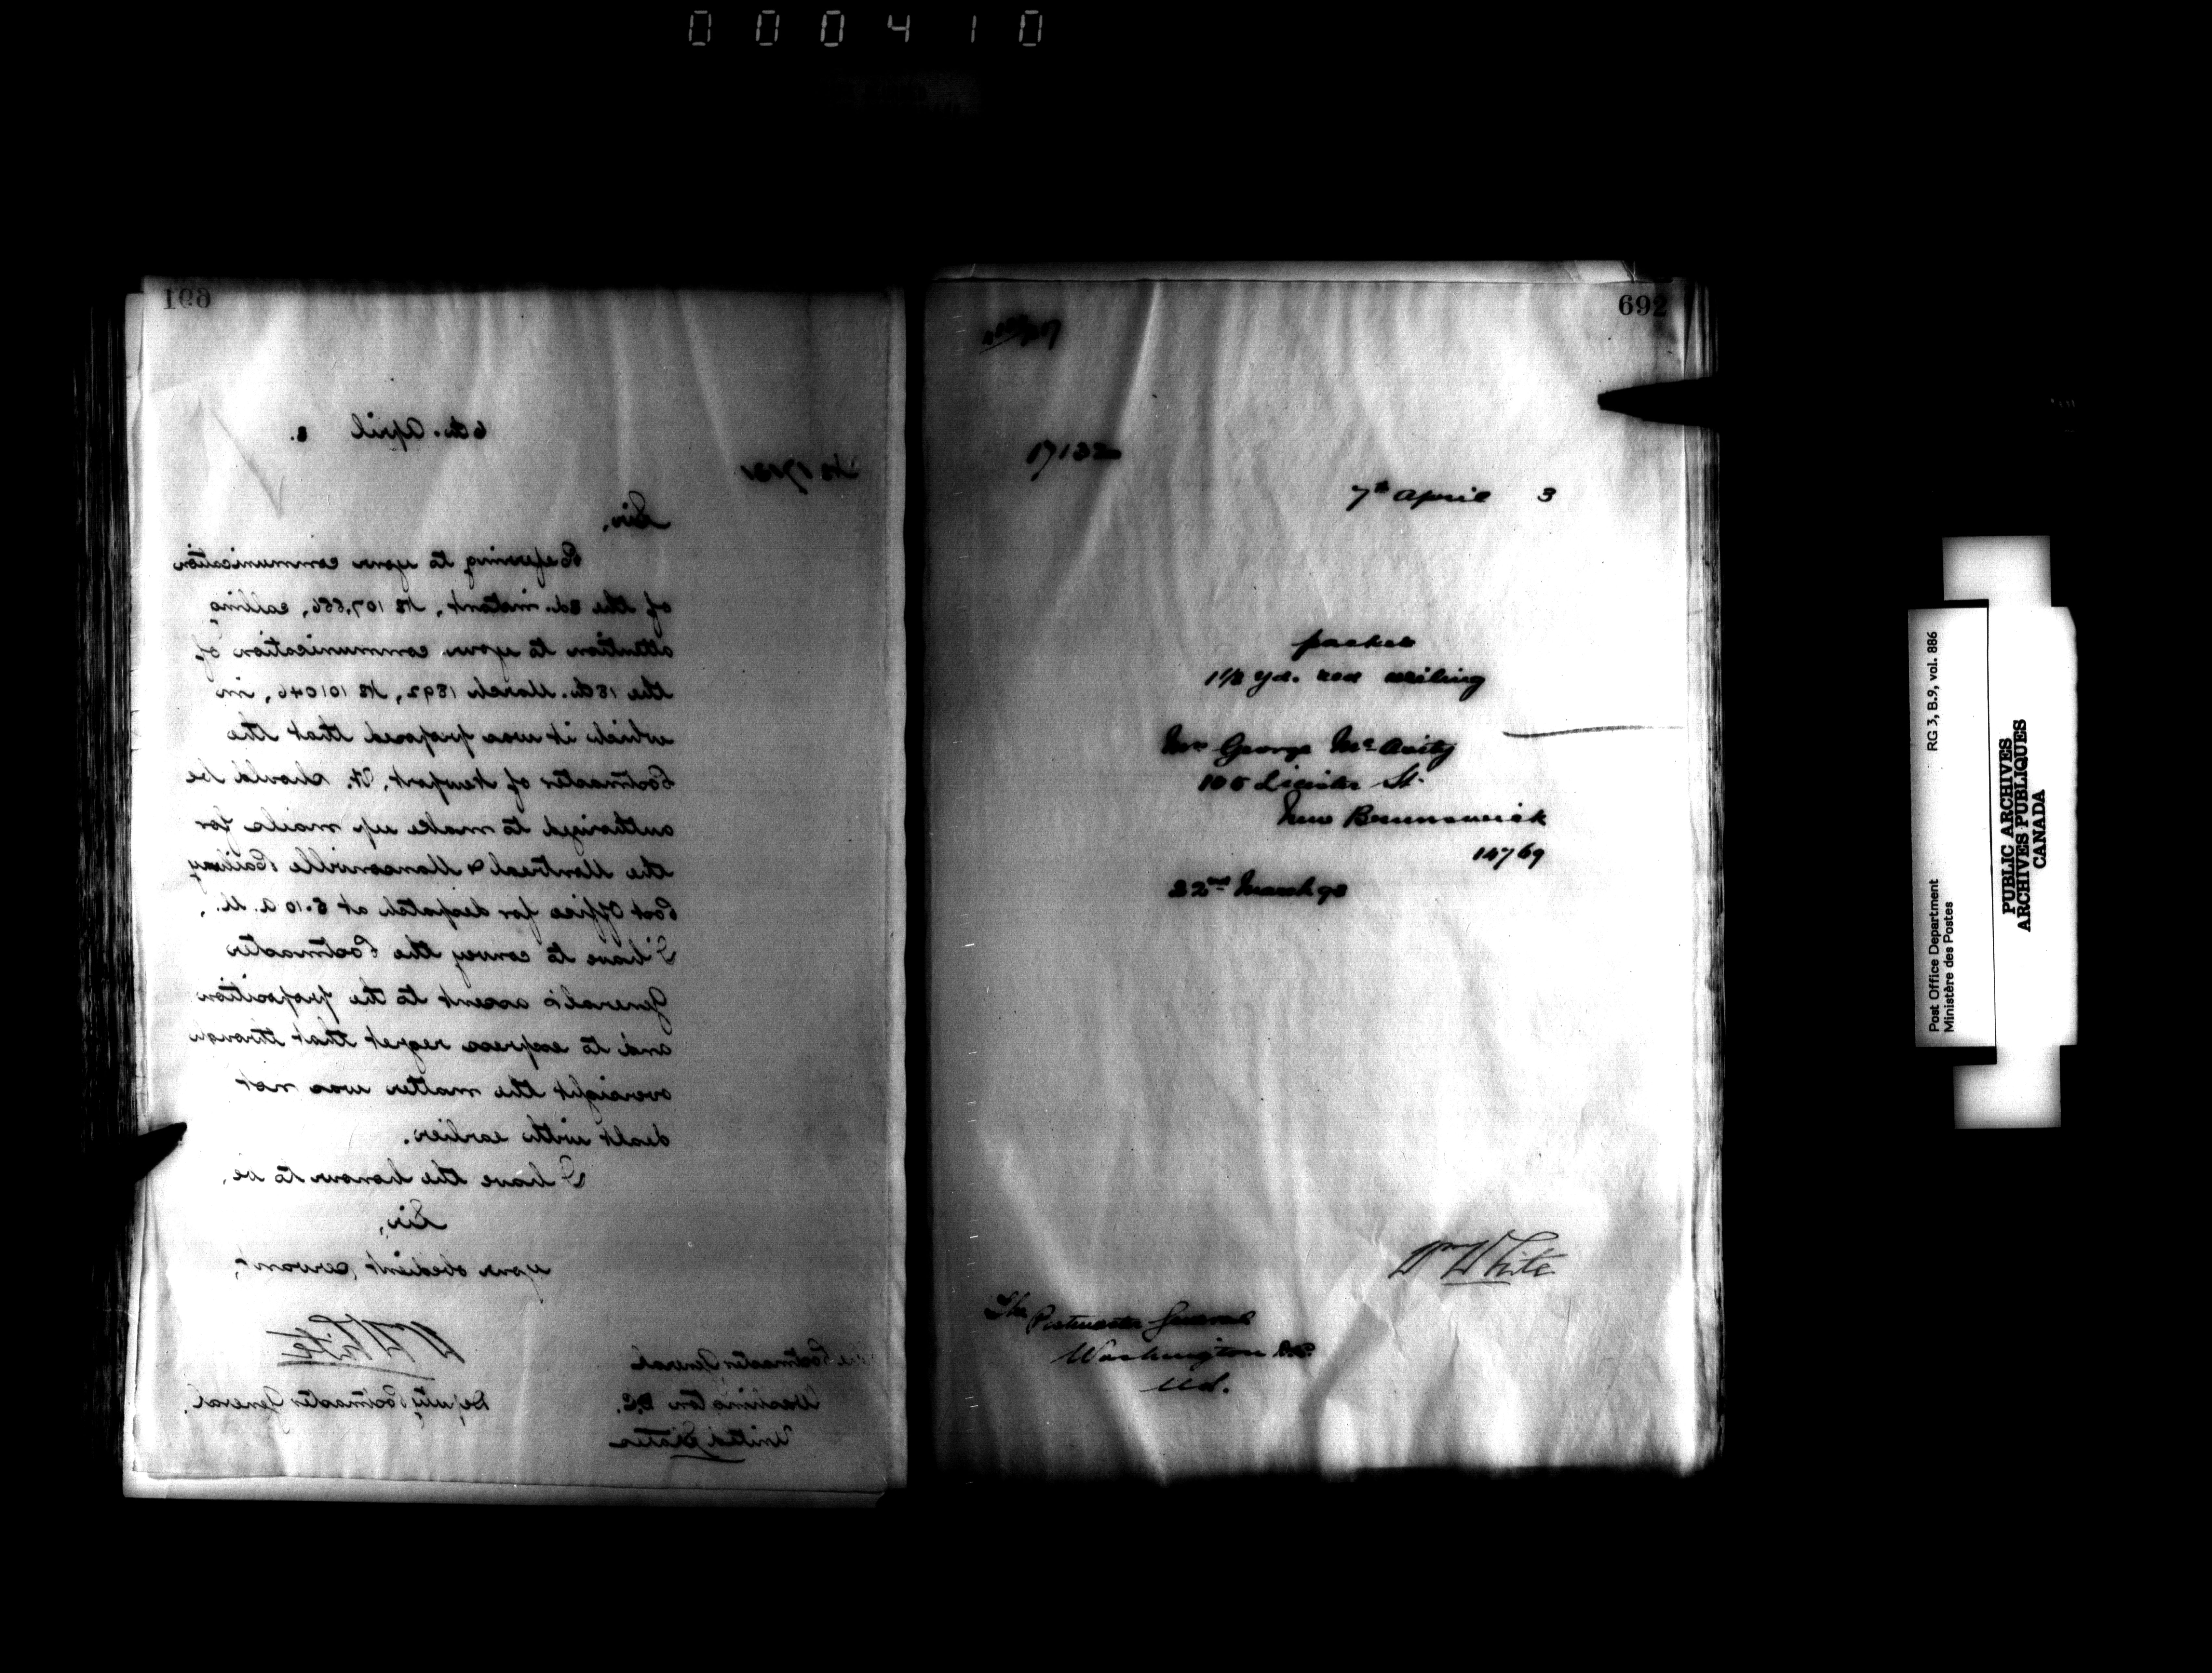 000410
691
6th. April 3.
No 17131
Sir,
Referring to your communication
of the 3d. instant, No 107,886, calling
attention to your communication of
the 18th. March 1892, No 101046, in
which it was proposed that the
Postmaster of Newport, Vt. should be
authorized to make up mails for
the Montreal & Mansonville Railway
Post Office for despatch at 5.10 a.m.,
I have to convey the Postmaster
General's assent to the proposition
and to express regret that through
oversight the matter was not
dealt with earlier.
I have the honour to be,
Sir,
your obedient servant,
Wm White
Deputy Postmaster General.
The Postmaster General
Washington D.C.
United States
692
17132
7th April 3
packet
1 1/8 yd. red veiling
Mrs George McAvity
New Brunswick
14769
22nd March 93
Wm White
The Postmaster General
Washington D.C.
U.S.
Post Office Department
Ministère des Postes
RG 3, B.9, vol. 886
PUBLIC ARCHIVES
ARCHIVES PUBLIQUES
CANADA